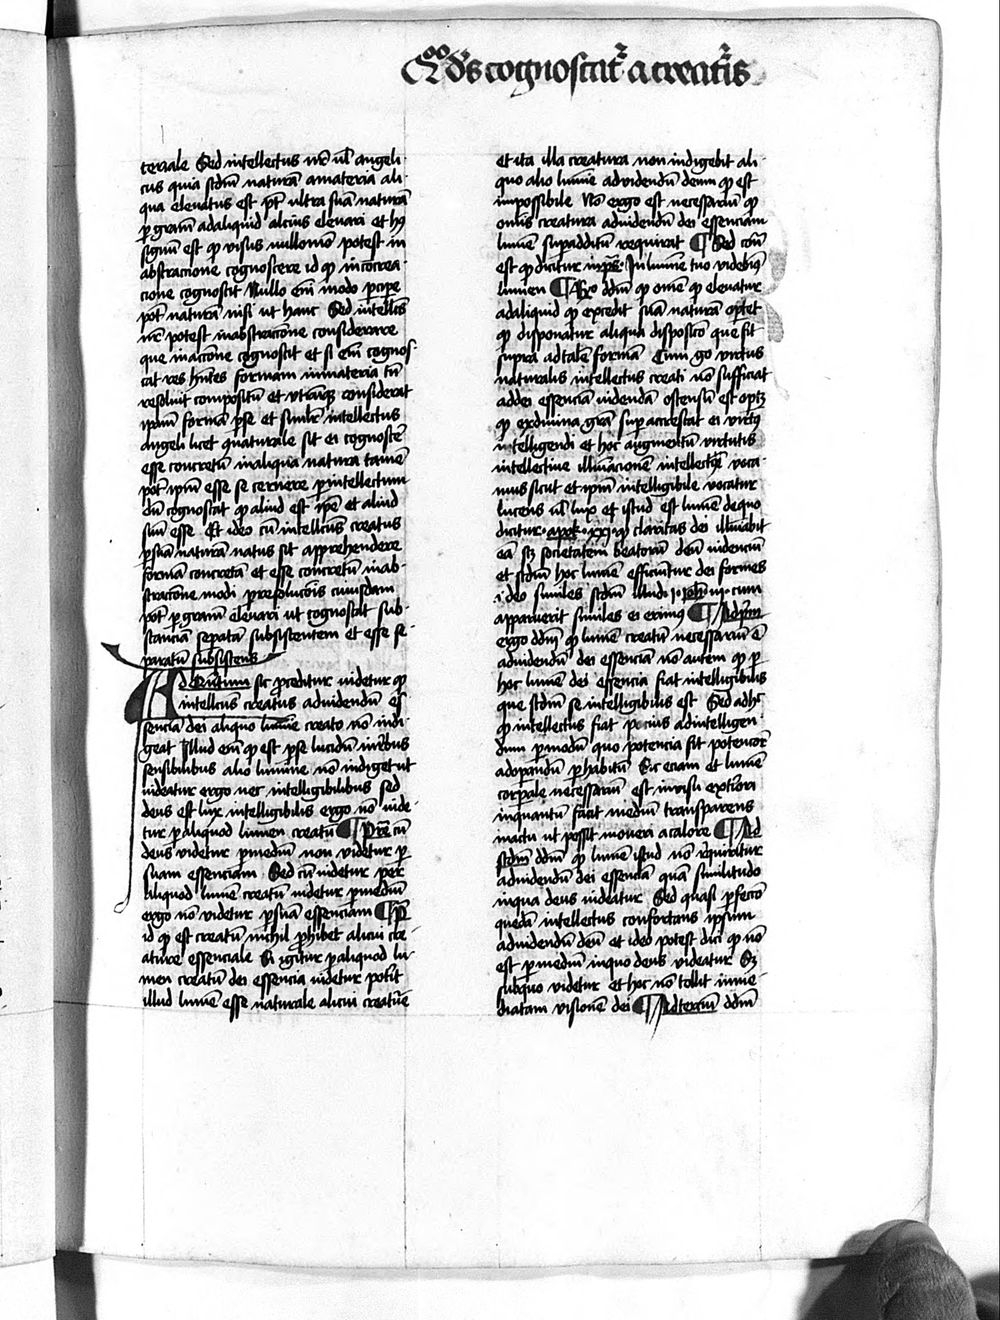 Quomodo ds cognoscitr a creatis
teriale Sed intellectus nr ul angeli-
cus quia scdm natura a materia ali-
qua elevatus est pt ultra sua natura
p gram ad aliquid alcius elevari et hj
signu est q visus nullomo potest in
abstractione cognoscere id q in concrea-
cione cognoscit Nullo em modo pcipe
pot natura nisi ut hanc Sed intellcs
nr potest in abstractone considerare
que in accone cognoscit et si em cognos-
cat res hntes formam in materia tn
resoluit compositu et utrumq considerat
ipam forma p se et similr intellectus
angeli licet qnaturale sit ei cognoscere
esse concretu in aliqua natura tame
pot ipm esse se cernere p intellectum
du cognoscit q aliud est ipe et aliud
suu esse Et ideo cu intellcus creatus
p sua natura natus sit apprehendere
forma concreta et esse concretu in ab-
stractone modi presolucois cuiusdam
pot p gram elevari ut cognoscat sub-
stancia sepata subsistentem et esse se-
paratu subsistens
Ad Quintum sic proceditur videtur q
intellcus creatus ad videndu es-
sencia dei aliquo lumine creato no indi-
geat Illud em q est p se lucidu in rebus
sensibilibus alio lumine no indiget ut
videatur ergo nec intelligibilibus Sed
deus est lux intelligibilis ergo no vide-
tur p aliquod lumen creatu ¶ Pre cu
deus videtur p mediu non videtur p
suam essenciam Sed cu videtur per
aliquod lume creatu videtur p mediu
ergo no videtur p sua essenciam ¶ P
id q est creatu nichil phibet alicui cre-
ature essenciale Si igitur p aliquod lu-
men creatu dei essencia videtur potit
illud lume esse naturale alicui creature
et ita illa creatura non indigebit ali-
quo alio lumine ad videndu deum q est
impossibile No ergo est necessariu q
omis creatura ad videndu dei essenciam
lume supadditu requirat ¶ Sed cont
est q dicitur in ps In lumine tuo videbimj
lumen ¶ Ro ddm q ome q elevatur
ad aliquid q excedit sua natura oportet
q disponatur aliqua disposicoe que sit
supra ad tale forma Cum go virtus
naturalis intellectus creati no sufficiat
ad dei essencia videnda ostensu est optz
q ex divina gra sup accrescat ei virtus
intelligendi et hoc augmentu virtutis
intellective illuiacione intellectus voca-
mus sicut et ipm intelligibile vocatur
lucens ul lux et istud est lume de quo
dicitur apok xxi q claritas dei illuiabit
ea scz societatem beatoru deu videnciu
et scdm hoc lume efficiutur dei formes
i deo similes scdm illud i ioh iii cum
apparuerit similes ei erimus ¶ Ad pm
ergo ddm q lume creatu necessariu e
ad videndu dei essencia no autem q p
hoc lume dei essencia fiat intelligibilis
que scdm se intelligibilis est Sed ad hc
q intellectus fiat pocius ad intelligen-
dum p modu quo potencia fit potencior
ad operandu p habitu Sic etiam et lume
corpale necessariu est in visu extiori
inquantu facit mediu transparens
in actu ut possit moveri a calore ¶ Ad
scdm ddm q lume istud no requiratur
ad videndu dei essencia qua similitudo
in qua deus videatur Sed quasi pfecco
queda intellectus confortans ipsum
ad videndu deu et ideo potest dici q no
est p mediu in quo deus videatur Sz
sub quo videtur et hoc no tollit inme-
diatam visione dei ¶ Ad terciu ddm